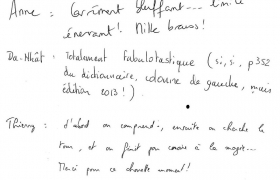 Anne : Carrément bluffant... limite
énervant ! Mille bravos !
Da-Nhât : Totalement fabulotastique (si, si, p352
du dictionnaire, colonne de gauche, mais
édition 2013 !).
Thierry : d'abord on comprend, ensuite on cherche le
truc, et on finit par croire à la magie...
Merci pour ce chouette moment !